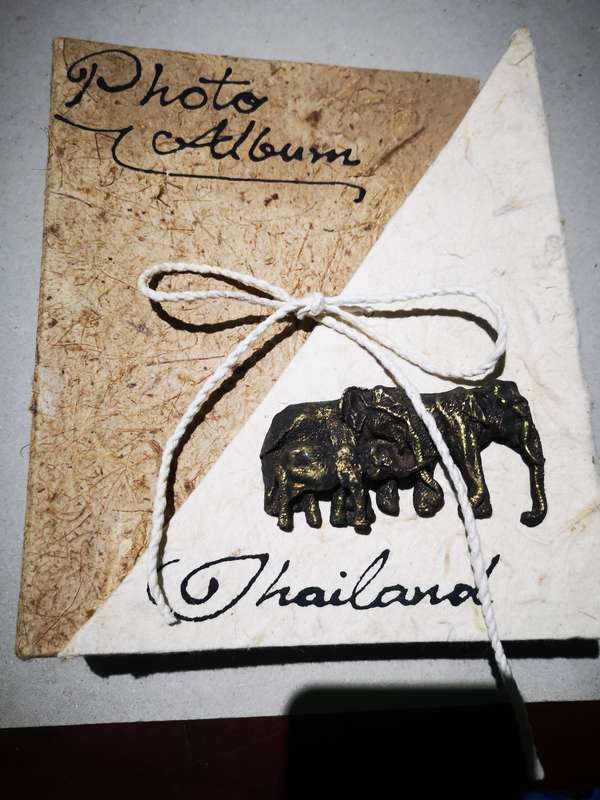 Photo
Album
Thailand